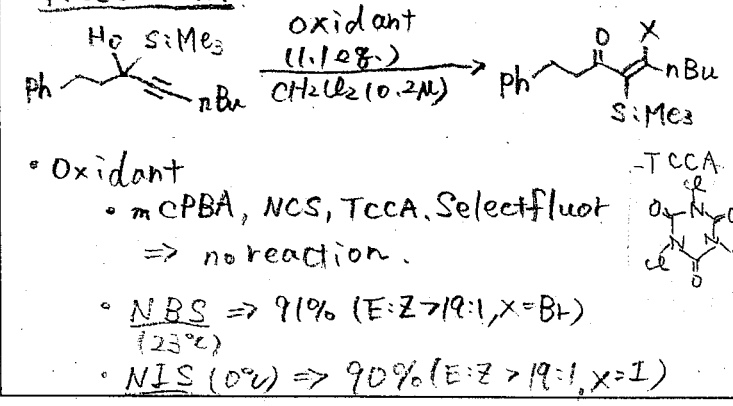 HO SiMe3
Ph nBu
oxidant
(1.1eq.)
CH2Cl2 (0.2M)
O X
Ph nBu
SiMe3
• Oxidant
• mCPBA, NCS, TCCA, Selectfluor
⇒ no reaction.
TCCA
Cl
O N O
N N
Cl
O
• NBS ⇒ 91% (E:Z>19:1, X=Br)
(23℃)
• NIS (0℃) ⇒ 90% (E:Z > 19:1, X=I)